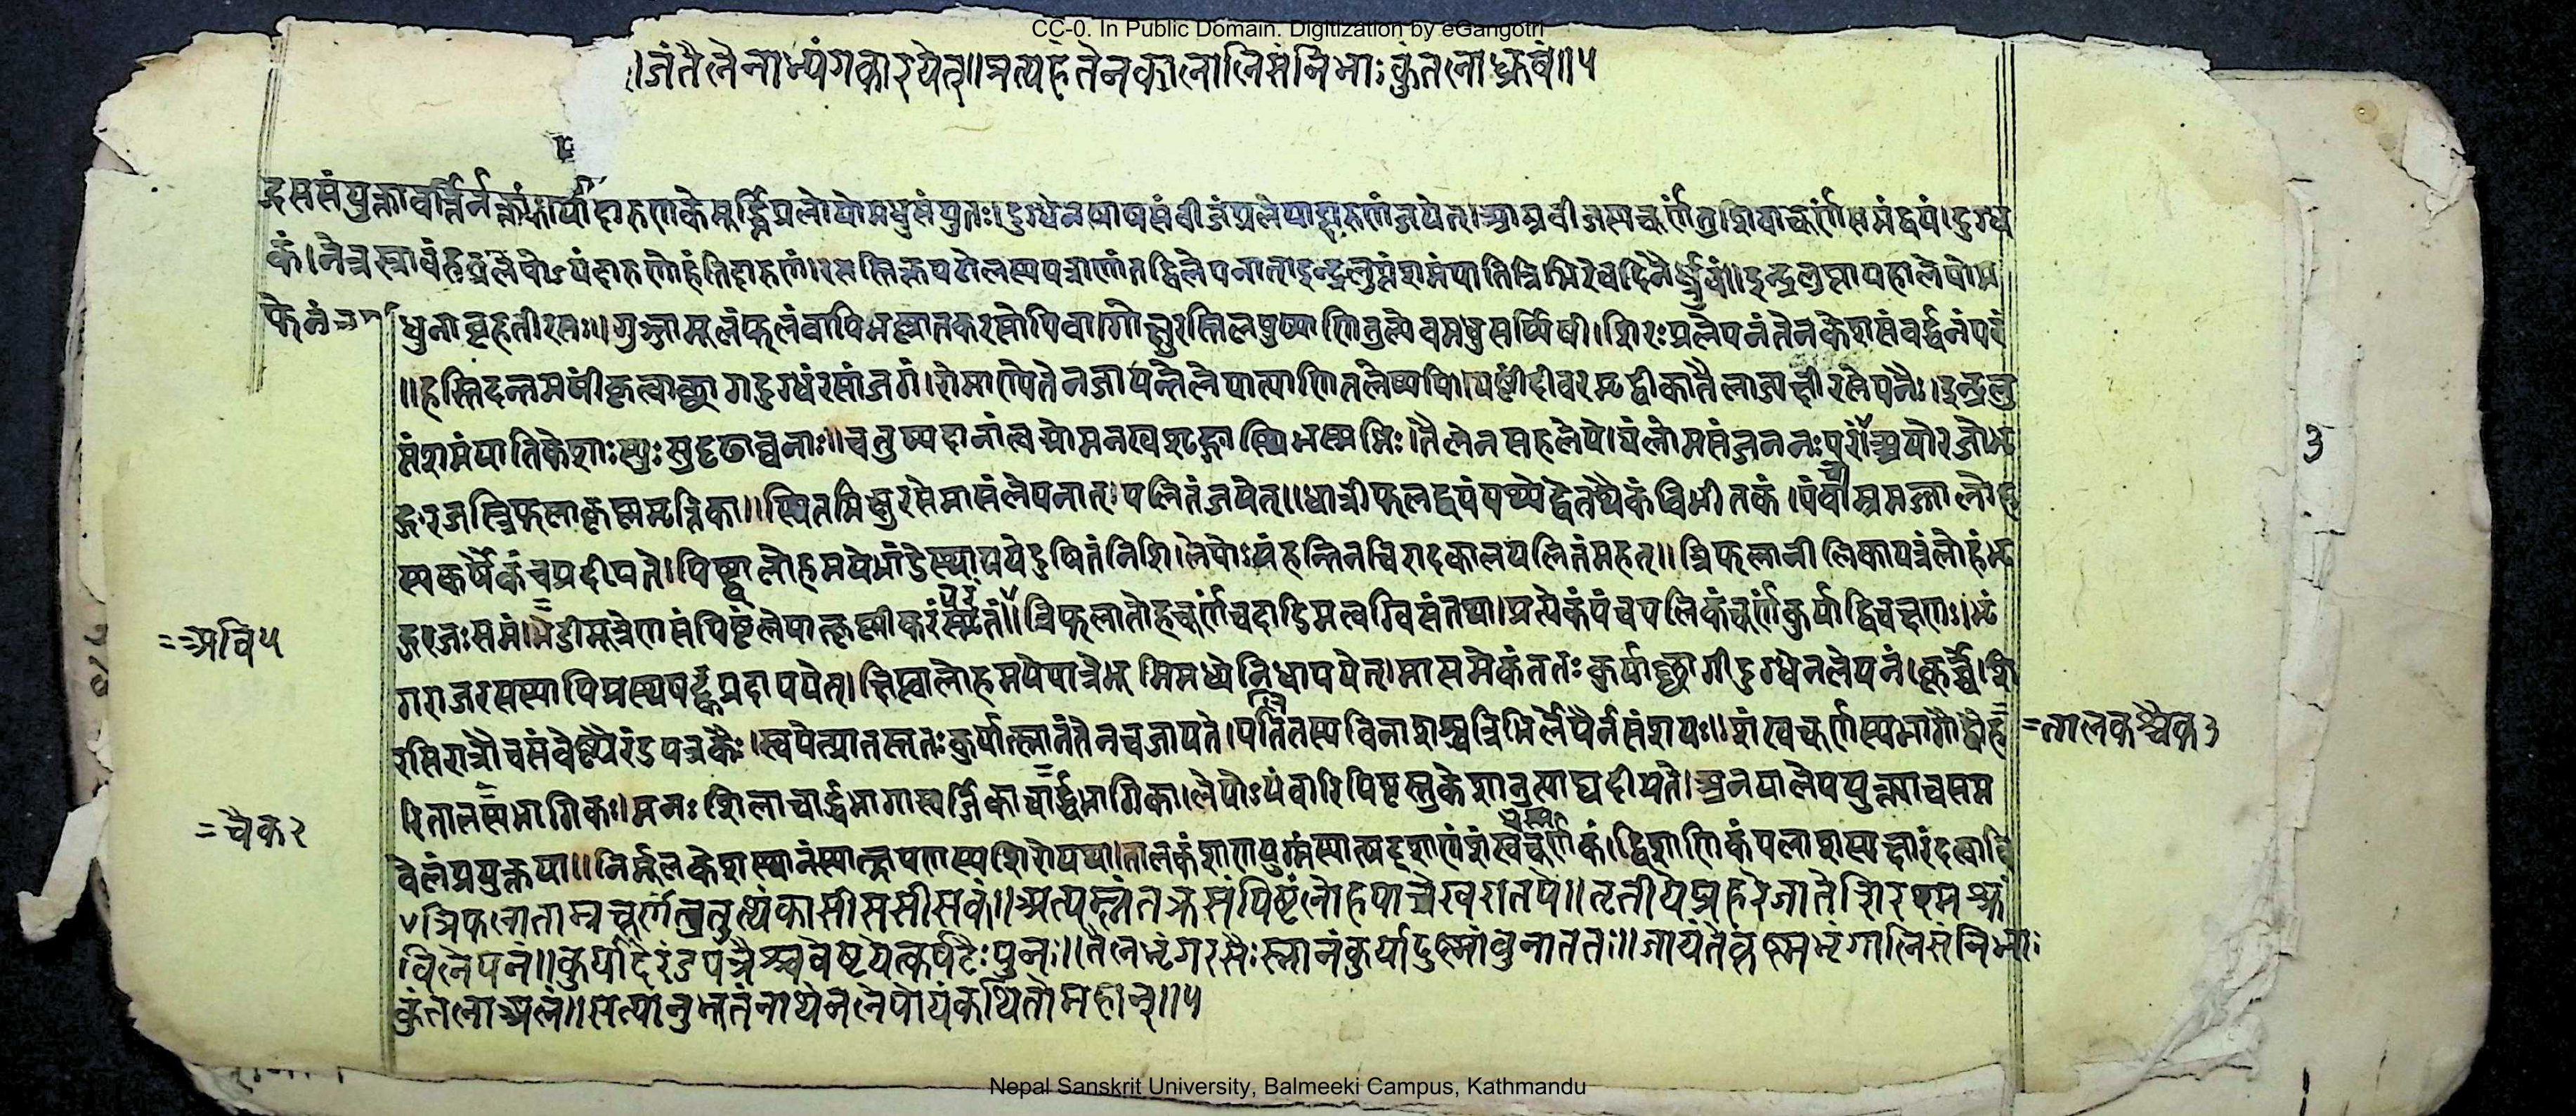 CC-0. In Public Domain. Digitization by eGangotri
।जंतैलेनाभ्यंगकारयेत्॥प्रत्यहंतेनकालालिसंनिभाःकुंतलाध्रुवं॥५
प्रलेपोमधुसंयुतः।दुग्धेनखाखसंबीजंप्रलेपाद्दारुणंजयेत्।आम्रबीजस्यचूर्णंतुशिवाचूर्णंसमंद्वयं।दुग्ध
लेपोऽयंदारुणोहंतिदारुणं।रसस्तिक्तपटोलस्यपत्राणांतद्विलेपनात्।इन्द्रलुप्तंशमंयातित्रिभिरेवदिनैर्ध्रुवं॥इन्द्रलुप्तापहोलेपोम
धुनाबृहतीरसः॥गुञ्जामूलंफलंवापिभल्लातकरसोपिवा।गोक्षुरस्तिलपुष्पाणितुल्येचमधुसर्प्पिषी।शिरःप्रलेपनंतेनकेशसंवर्द्धनंपरं
॥हस्तिदन्तमषींकृत्वाछागदुग्धंरसांजनं।रोमाण्येतेनजायन्तेलेपात्पाणितलेष्वपि।यष्टींदीवरमृद्वीकातैलाज्यक्षीरलेपनैः।इन्द्रलु
प्तंशमंयातिकेशाःस्युःसुदृढाघनाः॥चतुष्पदानांत्वग्रोमनखशृङ्गास्थिभस्मभिः।तैलेनसहलेपोयंलोमसंजननःपरः॥अयोरजोभृ
ङ्गरजस्त्रिफलाकृष्णमृत्तिका॥स्थितमिक्षुरसेमासंलेपनात्पलितंजयेत्॥धात्रीफलद्वयंपथ्येद्वेतथैकंविभीतकं।पंचाम्रमज्जालौह
स्यकर्षैकंचप्रदीयते।पिष्ट्वालोहमयेभांडेस्थापयेदुषितंनिशि।लेपोऽयंहन्तिनचिरादकालपलितंमहत्॥त्रिफलानीलिकापत्रंलोहंभृ
ङ्गरजःसमं।मेडीमूत्रेणसंपिष्टंलेपात्कृष्णीकरंस्मृतं॥त्रिफलालोहचूर्णंचदाडिमत्वग्विसंतथा।प्रत्येकंपंचपलिकंचूर्णंकुर्याद्विचक्षणः।भृं
=अवि५
गराजरसस्यापिप्रस्थषट्कंप्रदापयेत्।क्षिप्त्वालोहमयेपात्रेभूमिमध्येनिधापयेत्।मासमेकंततःकुर्याछागीदुग्धेनलेपनं।कूर्च्चेशि
रसिरात्रौचसंवेष्ट्यैरंडपत्रकैः।स्वपेत्प्रातस्ततःकुर्यात्स्नानंतेनचजायते।पलितस्यविनाशश्चत्रिभिर्लेपैर्नसंशयः॥शंखचूर्णस्यभागौद्वौह
=तालकश्चैक३
रितालसमभागिकः।मनःशिलाचार्द्धभागास्वर्जिकाचार्द्धभागिका।लेपोऽयंवारिपिष्टस्तुकेशानुत्पाट्यदीयते।अनयालेपयुक्त्याचसप्त
=चैक२
वेलंप्रयुक्तया॥निर्मूलकेशस्थानंस्यात्क्षपणस्यशिरोयथा।तालकंशाणयुग्मंस्यात्षट्शाणंशंखचूर्णकं।द्विशाणिकंपलाशस्यक्षारंदत्वा
∨त्रिफलाताम्रचूर्णंचतुत्थंकासीससीसकं॥अत्यम्लंतक्रसंपिष्टंलोहपात्रेखरातपे॥तृतीयेप्रहरेजातेशिरश्मश्रू
विलेपनं॥कुर्यादेरंडपत्रैश्चवेष्टयेत्कर्पटैःपुनः॥तेनभृंगरसैःस्नानंकुर्यादुष्णांबुनाततः॥जायंतेकृष्णभृंगालिसंनिभाः
कुंतलाअलं॥सत्यानुभूतंनाथेनलेपोयंकथितोमहान्॥५
३
Nepal Sanskrit University, Balmeeki Campus, Kathmandu